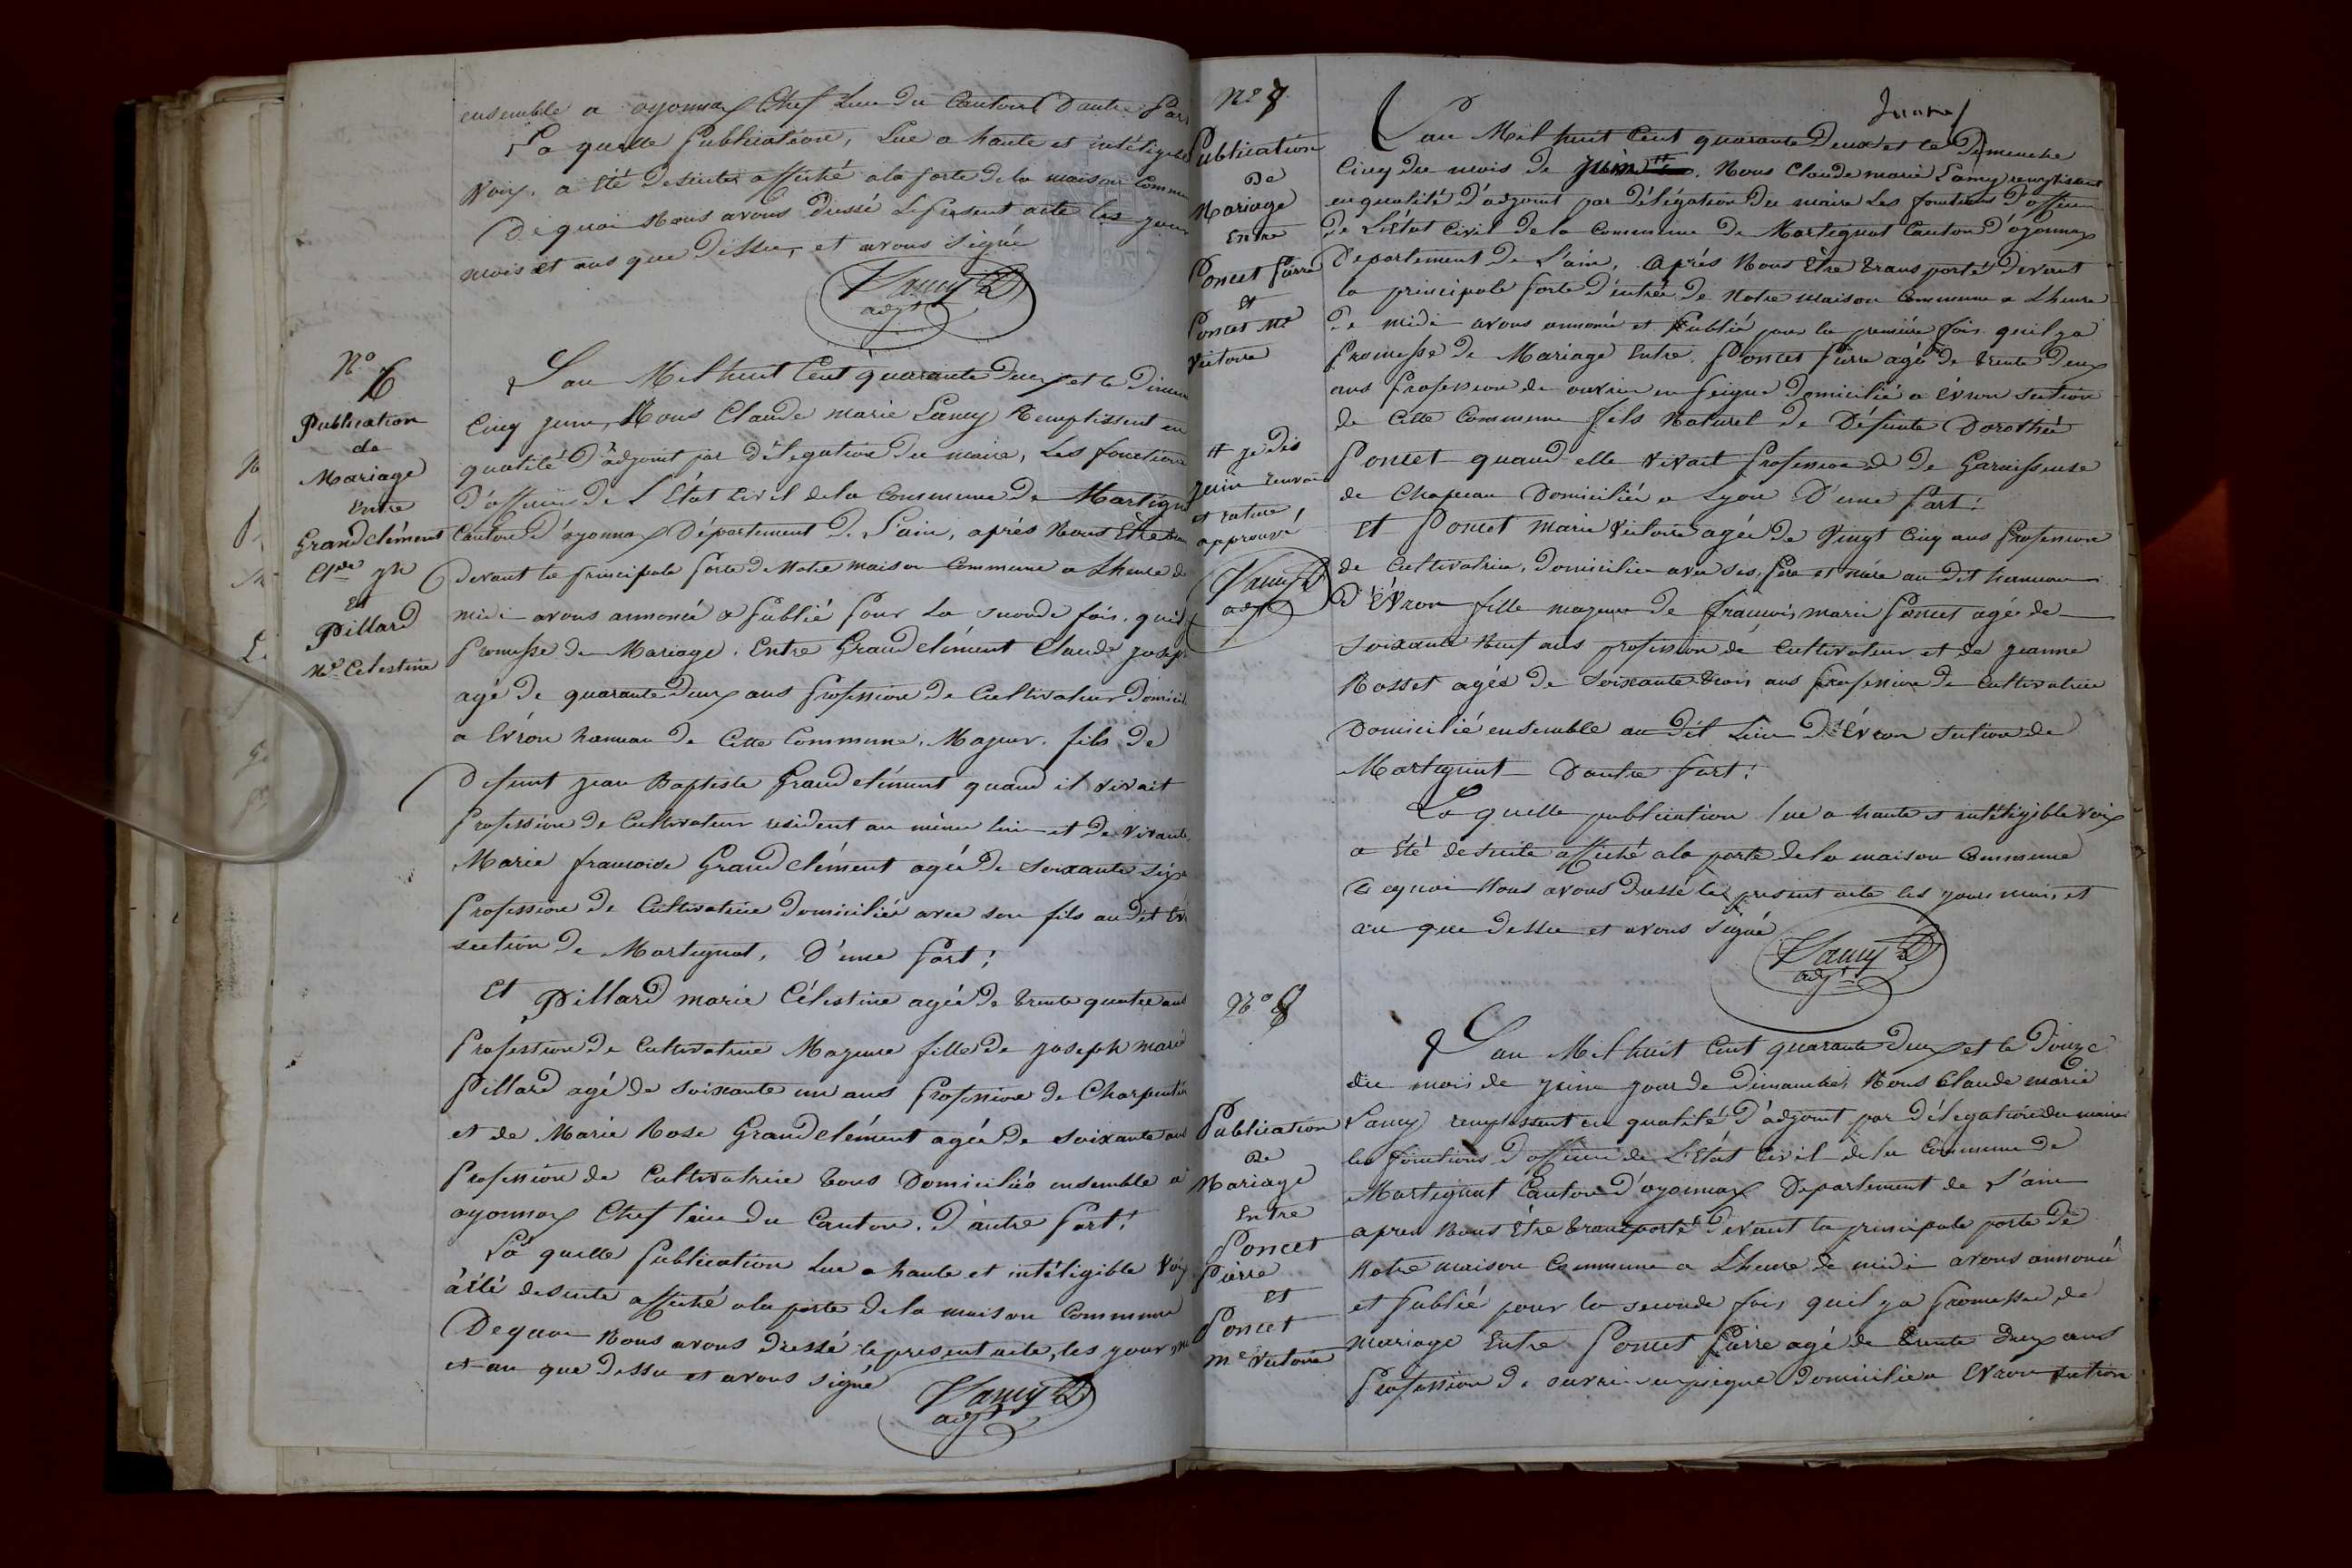 ensemble a oyonnax Chef Lieu du Canton Dautre Par
La quelle Publication, Lue a haute et intéligible
Voix, a Eté desuite affiché a la porte de la maison Commu
De quoi Nous avons Dressé Le present acte les jour
mois et ans que Dessu, et avons signé
Lamy
adjt
No 6
Publication
de
Mariage
Entre
Grandclément
Cde jh
Et
Pillard
Me Celestine
L'an Mil huit Cent quarante deux et le Diman
Cinq juin, Nous Claude marie Lamy Remplissent en
qualité D'adjoint par Délegation Du maire, Les fonctions
D'officier De L'Etat Civil de la Commune De Martign
Canton D'oyonnax Département De L'ain, aprés Nous Etre
devant la principale porte De Notre maison Commune a Lheure de
midi avons annoncé & Publié Pour La seconde fois, quil
Promesse De Mariage. Entre Grand clément Claude joseph
agé De quarante Deux ans Profession De Cultivateur Domicil
a Evron hameau De Cette Commune, Majeur, fils De
Defunt jean Baptiste Grand clément quand il vivait
Profession De Cultivateur resident au même lieu et De Vivante
Marie francoise Grand clément agée De soixante six
Profession De Cultivatrice Domiciliée avec son fils au Dit Ev
section De Martignat, D'une Part;
Et Pillard marie Célestine agée De trente quatre ans
Profession De Cultivatrice Majeure fille De joseph marie
Pillard agé De soixante un ans Profession De Charpentier
et de Marie Rose Grand clément agée De soixante ans
Profession de Cultivatrice tous Domiciliés ensemble a
oyonnax Chef lieu Du Canton, D'autre Part;
La quelle Publication Lue a haute et intéligible Voix
a été desuite affiché a la porte de la maison Commune
De quoi Nous avons Dressé le present acte, les jour
et an que Dessu et avons signé
Lamy
adjt
No 7
Publication
De
Mariage
Entre
Poncet Pierre
Et
Poncet Me
Victoire
# je dis
juin renvoi
et rature
approuvé
Lamy
adjt
L'an Mil huit Cent quarante Deux et le Dimenche
Cinq du mois de juin #. Nous Claude marie Lamy remplissent
en qualité D'adjoint par Délégation Du maire Les fonctions D'officier
De L'Etat Civil De la Commune De Martignat Canton D'oyonnax
Departement De L'ain, Aprés Nous Etre transporté Devant
la principale porte D'entrée De Notre maison Commune a Lheure
De midi avons annoncé et Publié pour la premiére fois quil ya
Promesse De Mariage Entre Poncet Pierre agé de trente Deux
ans Profession de ouvrier en peigne Domicilié a Evron section
de Cette Commune fils Naturel de Défunte Dorothée
Poncet quand elle vivait Profession De Garnisseuse
de Chapeau Domiciliée a Lyon D'une Part;
Et Poncet Marie Victoire agée De Vingt Cinq ans Profession
de Cultivatrice, Domiciliée avec ses Pére et mére au Dit hameau
D'Evron fille majeure De francois marie Poncet agé de
soixante Neuf ans profession de Cultivateur et de jeanne
Rosset agée De soixante trois ans Profession De Cultivatrice
Domicilié ensemble au Dit Lieu D'Evron section de
Martignat Dautre Part;
La quelle publication lue a haute et intéligible Voix
a Eté desuite affiché a la porte de la maison Commune
De quoi Nous avons Dressé le present acte les jour, mois, et
an que Dessu et avons signé
Lamy
adjt
No 8
Publication
De
Mariage
Entre
Poncet
Pierre
et
Poncet
Me Victoire
L'an Mil huit Cent quarante Deux et le Douze
du mois de juin jour de Dimanche, Nous Claude marie
Lamy remplissent en qualité D'adjoint par Délegation du maire
les fonctions D'officier de L'Etat Civil de la Commune De
Martignat Canton D'oyonnax Departement de L'ain
apres Nous Etre transporté Devant la principale porte De
Notre maison Commune a Lheure de midi avons annoncé
et Publié pour la seconde fois quil ya Promesse de
mariage Entre Poncet Pierre agé de trente deux ans
Profession De ouvrier en peigne Domicilié a Evron section